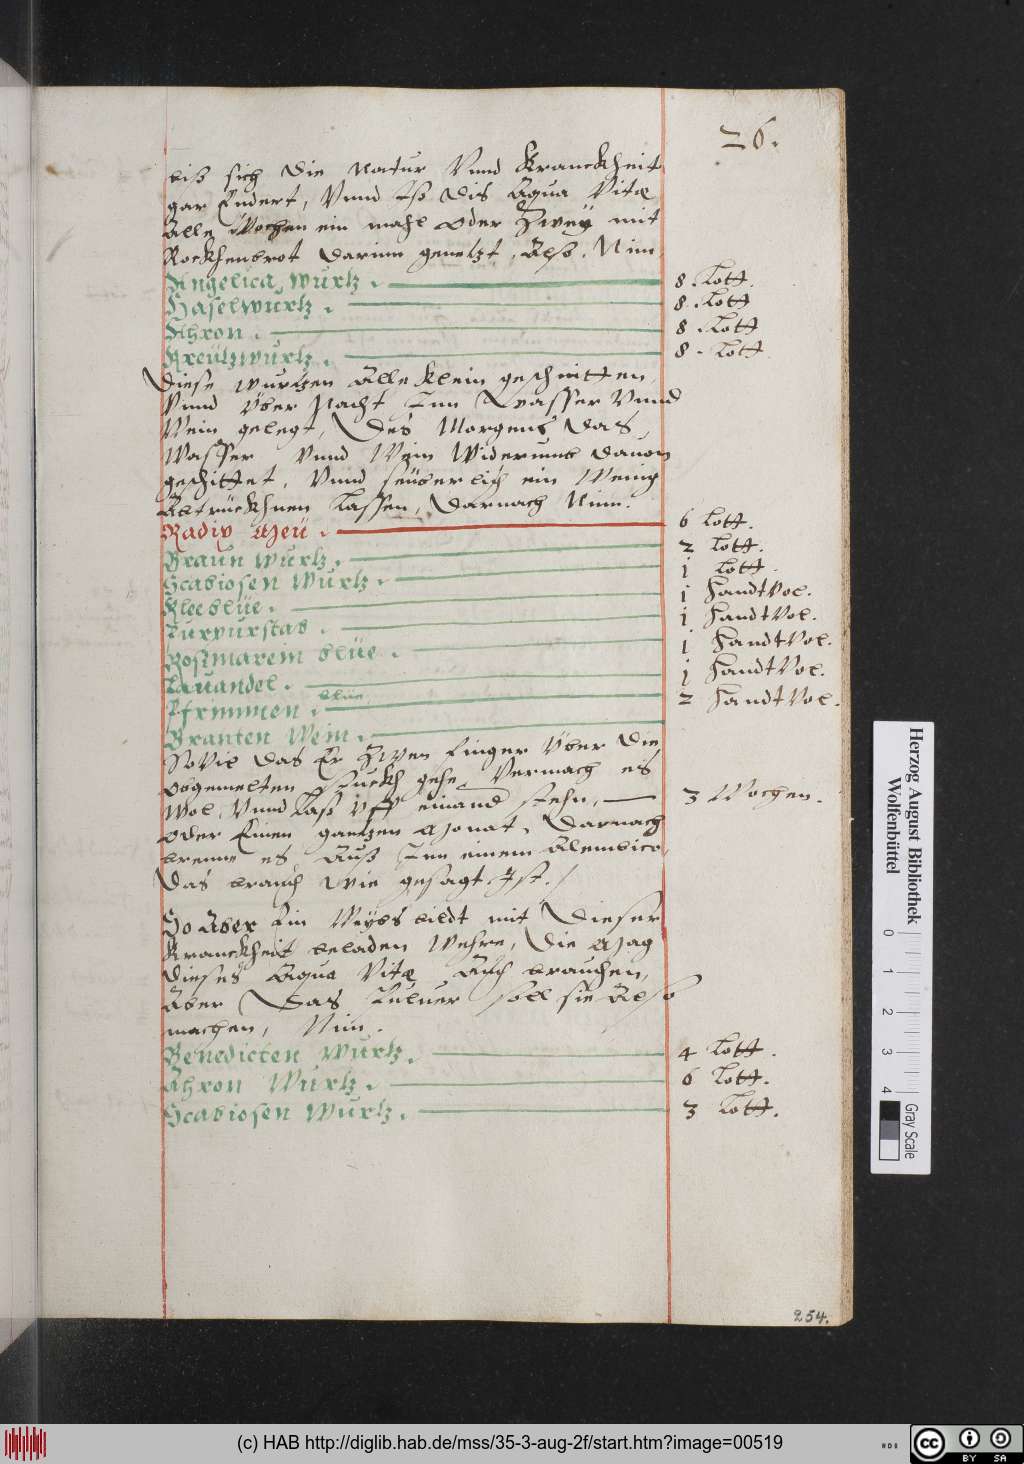 26.
biß sich die Natur Vnnd Kranckheit
gar Endert, Vnnd Iß dis Aqua Vitæ
Alle Wochen ein mahl oder Zwey mit
Rockhenbrot darinn genetzt, Also. Nim,
Angelica, wurtz. 8. Lott.
Haselwurtz. 8. Lott
Ahron. 8. Lott
Kreützwurtz. 8. Lott
Diese wurtzen Alle klein geschnitten,
Vnnd Vber Nacht Inn Wasser Vnnd
Wein gelegt, Des Morgens das
Wasser Vnnd Wein Widerumb dauon
geschittet, Vnnd seüberlich ein Wenig
Abtrückhnen lassen, Darnach Nim.
Radix Meü. 6 Lott.
Braun Wurtz. 2 Lott.
Scabiosen Wurtz. j Lott.
Kleeblüe. j Handt Vol.
j Handt Vol.
Rosmarein blüe. j Handt Vol.
Lauandel. j Handt Vol.
blüe
Pfrimmen. 2 Handt Vol.
Branten Wein.
So Vil das Er Zwen finger Vber die
obgemelten Stuckh gehe, Vermach es
Wol, Vnnd laß Vff einand stehn, 3 Wochen.
oder Einen gantzen Monat, Darnach
brenne es Auß Inn einem Alembico,
Das brauch Wie gesagt Ist./
So Aber Ein Weybs bildt mit Dieser
Kranckheit beladen Wehre, Die Mag
dieses Aqua Vitæ Auch brauchen,
Aber Das Puluer soll sie Also
machen, Nim.
Benedicten Wurtz. 4 Lott.
Ahron Wurtz. 6 Lott.
Scabiosen Wurtz. 3 Lott.
254.
Herzog August Bibliothek
Wolfenbüttel
0 1 2 3 4
Gray Scale
(c) HAB http://diglib.hab.de/mss/35-3-aug-2f/start.htm?image=00519
cc BY SA